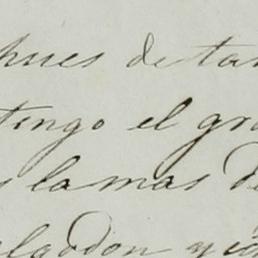 pues de tan
tengo el gra
s la mas de
algodon y